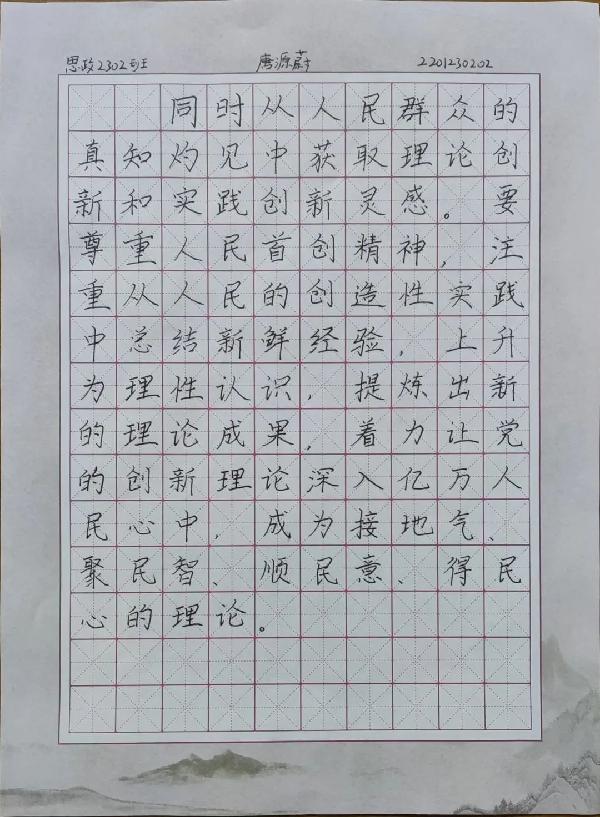 思政2302班 唐源蔚 2201230202
同时从人民群众的
真知灼见中获取理论创
新和实践创新灵感。要
尊重人民首创精神，注
重从人民的创造性实践
中总结新鲜经验，上升
为理性认识，提炼出新
的理论成果，着力让党
的创新理论深入亿万人
民心中，成为接地气、
聚民智、顺民意、得民
心的理论。